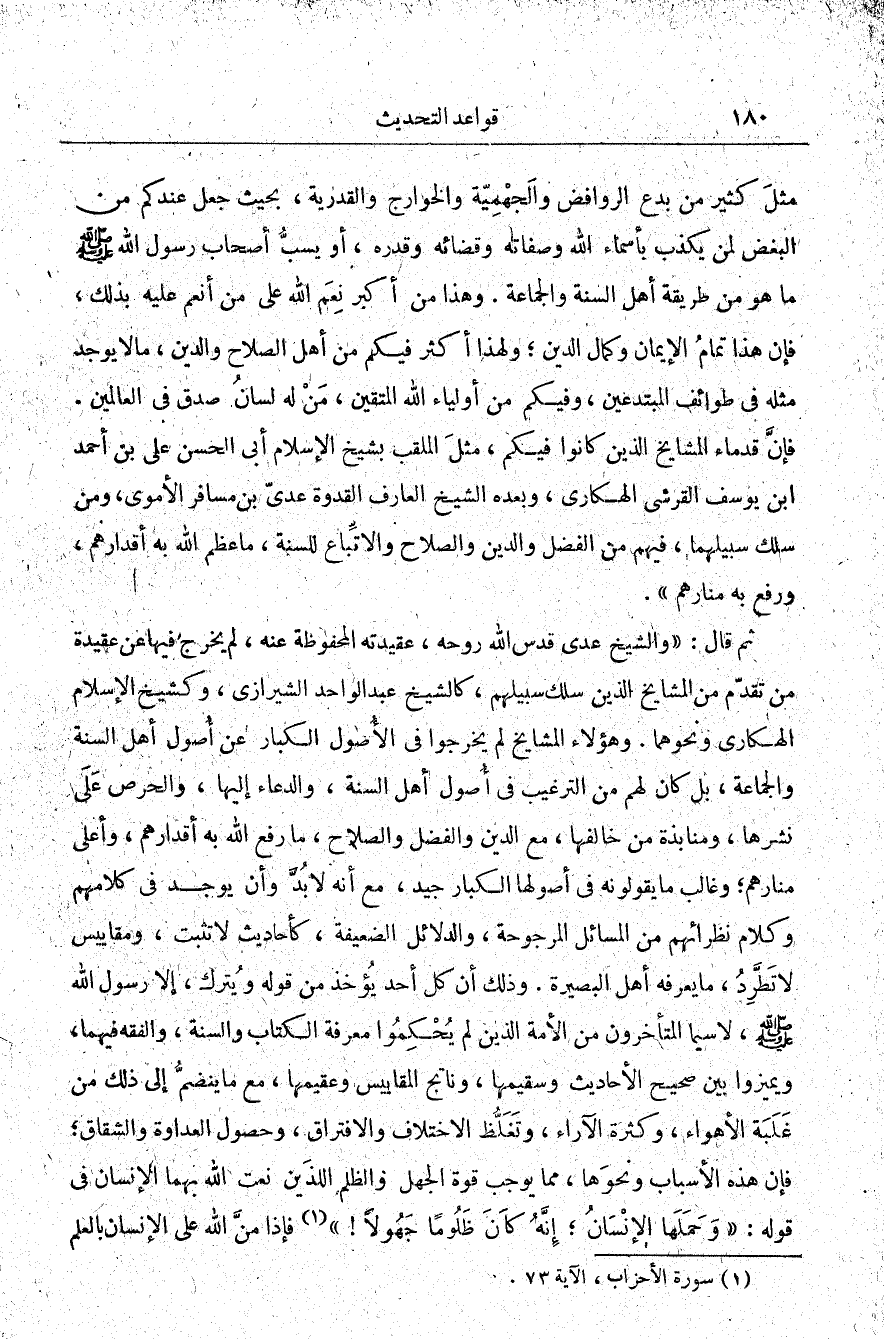 ١٨٠ قواعد التحديث
مثلَ كثير من بدع الروافض والجَهْمِيّة والخوارج والقدرية ، بحيث جعل عندكم من
البغض لمن يكذب بأسماء الله وصفاته وقضائه وقدره ، أو يسبُّ أصحاب رسول الله ﷺ
ما هو من طريقة أهل السنة والجماعة . وهذا من أكبر نِعَم الله على من أنعم عليه بذلك ،
فإن هذا تمامُ الإيمان وكمال الدين ؛ ولهذا أكثر فيكم من أهل الصلاح والدين ، مالا يوجد
مثله فى طوائف المبتدعين ، وفيكم من أولياء الله المتقين ، مَنْ له لسانُ صدق فى العالمين .
فإنَّ قدماء المشايخ الذين كانوا فيكم ، مثلَ الملقب بشيخ الإسلام أبى الحسن على بن أحمد
ابن يوسف القرشى الهكارى ، وبعده الشيخ العارف القدوة عدىّ بن مسافر الأموى، ومن
سلك سبيلهما ، فيهم من الفضل والدين والصلاح والاتِّباع للسنة ، ماعظم الله به أقدارهم ،
ورفع به منارهم » .
ثم قال : «والشيخ عدى قدس الله روحه ، عقيدته المحفوظة عنه ، لم يخرج فيها عن عقيدة
من تقدّم من المشايخ الذين سلك سبيلهم ، كالشيخ عبد الواحد الشيرازى ، وكشيخ الإسلام
الهكارى ونحوهما . وهؤلاء المشايخ لم يخرجوا فى الأُصول الكبار عن أُصول أهل السنة
والجماعة ، بل كان لهم من الترغيب فى أُصول أهل السنة ، والدعاء إليها ، والحرص عَلَى
نشرها ، ومنابذة من خالفها ، مع الدين والفضل والصلاح ، ما رفع الله به أقدارهم ، وأعلى
منارهم؛ وغالب مايقولونه فى أصولها الكبار جيد ، مع أنه لابُدَّ وأن يوجد فى كلامهم
وكلام نظرائهم من المسائل المرجوحة ، والدلائل الضعيفة ، كأحاديث لاتثبت ، ومقاييس
لاتَطَّرِدُ ، مايعرفه أهل البصيرة . وذلك أن كل أحد يُؤخذ من قوله ويُترك ، إلا رسول الله
ﷺ ، لاسيما المتأخرون من الأمة الذين لم يُحْكِمُوا معرفة الكتاب والسنة ، والفقه فيهما،
ويميزوا بين صحيح الأحاديث وسقيمها ، وناتج المقاييس وعقيمها ، مع ماينضمُّ إلى ذلك من
غَلَبَة الأهواء ، وكثرة الآراء ، وتَغَلُّظ الاختلاف والافتراق ، وحصول العداوة والشقاق؛
فإن هذه الأسباب ونحوَها ، مما يوجب قوة الجهل والظلم اللذَين نعت الله بهما الإنسان فى
قوله : « وَحَمَلَها الإنْسَانُ ؛ إِنَّهُ كَانَ ظَلُومًا جَهُولاً ! »(١) فإذا منَّ الله على الإنسان بالعلم
(١) سورة الأحزاب ، الآية ٧٣ .